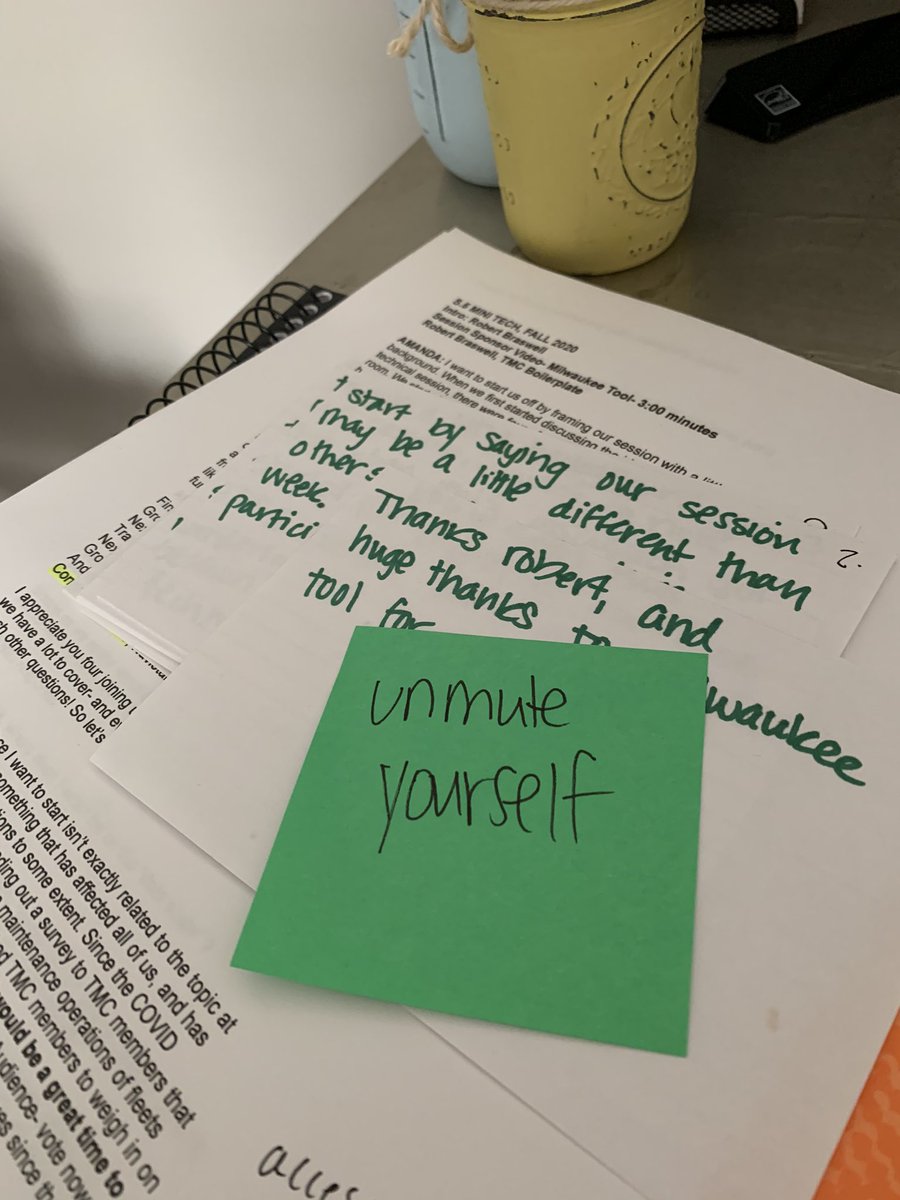 S.5 MINI TECH, FALL 2020
Intro: Robert Braswell
Session Sponsor Video- Milwaukee Tool- 3:00 minutes
Robert Braswell, TMC Boilerplate
AMANDA: I want to start us off by framing our session with a
background. When we first started discussing
technical session, there were
room. We
start by saying our session
may be a little different than
others
week.
partici
Thanks robert, and
huge thanks to
waukee
tool for
unmute
yourself
Fin
Gr
Ne
Tra
Nex
Gro
And
Con
I appreciate you four joining
we have a lot to cover- and
other questions! So let's
I want to start isn't exactly related to the topic at
something that has affected all of us, and has
to some extent. Since the COVID
out a survey to TMC members that
maintenance operations of fleets
TMC members to weigh in on
would be a great time to
audience- vote now
since